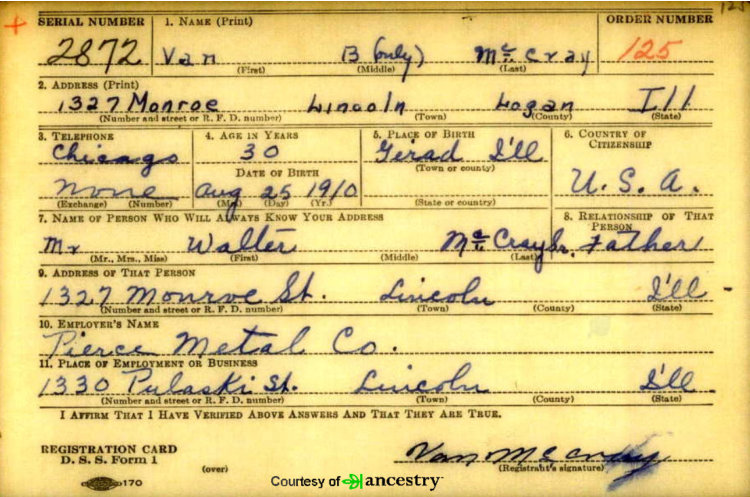 125
SERIAL NUMBER 1. NAME (Print) ORDER NUMBER
2872 Van B (only) Mc Cray 125
(First) (Middle) (Last)
2. ADDRESS (Print)
1327 Monroe Lincoln Logan Ill
(Number and street or R. F. D. number) (Town) (County) (State)
3. TELEPHONE 4. AGE IN YEARS 5. PLACE OF BIRTH 6. COUNTRY OF CITIZENSHIP
Chicago 30 Gerad I'll
DATE OF BIRTH (Town or county)
none Aug 25 1910 U. S. A.
(Exchange) (Number) (Mo.) (Day) (Yr.) (State or country)
7. NAME OF PERSON WHO WILL ALWAYS KNOW YOUR ADDRESS 8. RELATIONSHIP OF THAT PERSON
Mr Walter Mc Cray Sr. Father
(Mr., Mrs., Miss) (First) (Middle) (Last)
9. ADDRESS OF THAT PERSON
1327 Monroe St. Lincoln I'll
(Number and street or R. F. D. number) (Town) (County) (State)
10. EMPLOYER'S NAME
Pierce Metal Co.
11. PLACE OF EMPLOYMENT OR BUSINESS
1330 Pulaski St. Lincoln I'll
(Number and street or R. F. D. number) (Town) (County) (State)
I AFFIRM THAT I HAVE VERIFIED ABOVE ANSWERS AND THAT THEY ARE TRUE.
REGISTRATION CARD
D. S. S. Form 1 (over) Van McCray
(Registrant's signature)
170
Courtesy of ancestry